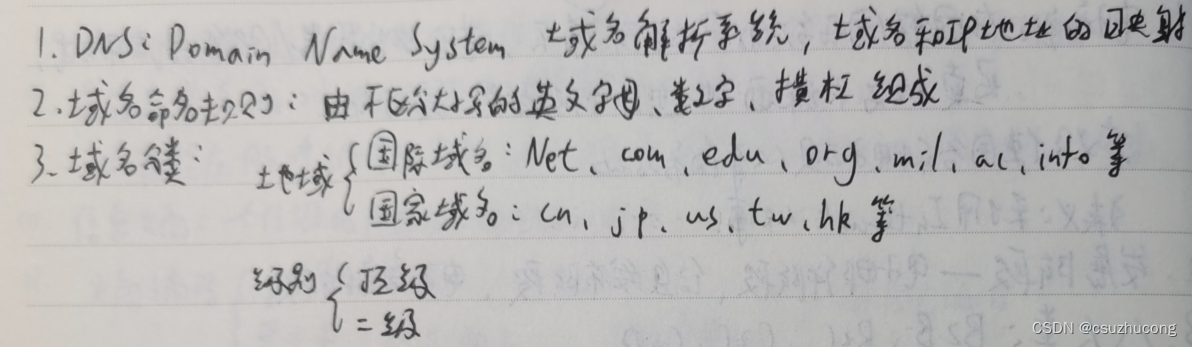 1. DNS: Domain Name System 域名解析系统, 域名和IP地址的映射
2. 域名命名规则: 由不区分大小写的英文字母、数字、横杠组成
3. 域名分类:
地域
国际域名: Net、com、edu、org、mil、ac、info 等
国家域名: cn、jp、us、tw、hk 等
级别
顶级
二级
CSDN @csuzhucong